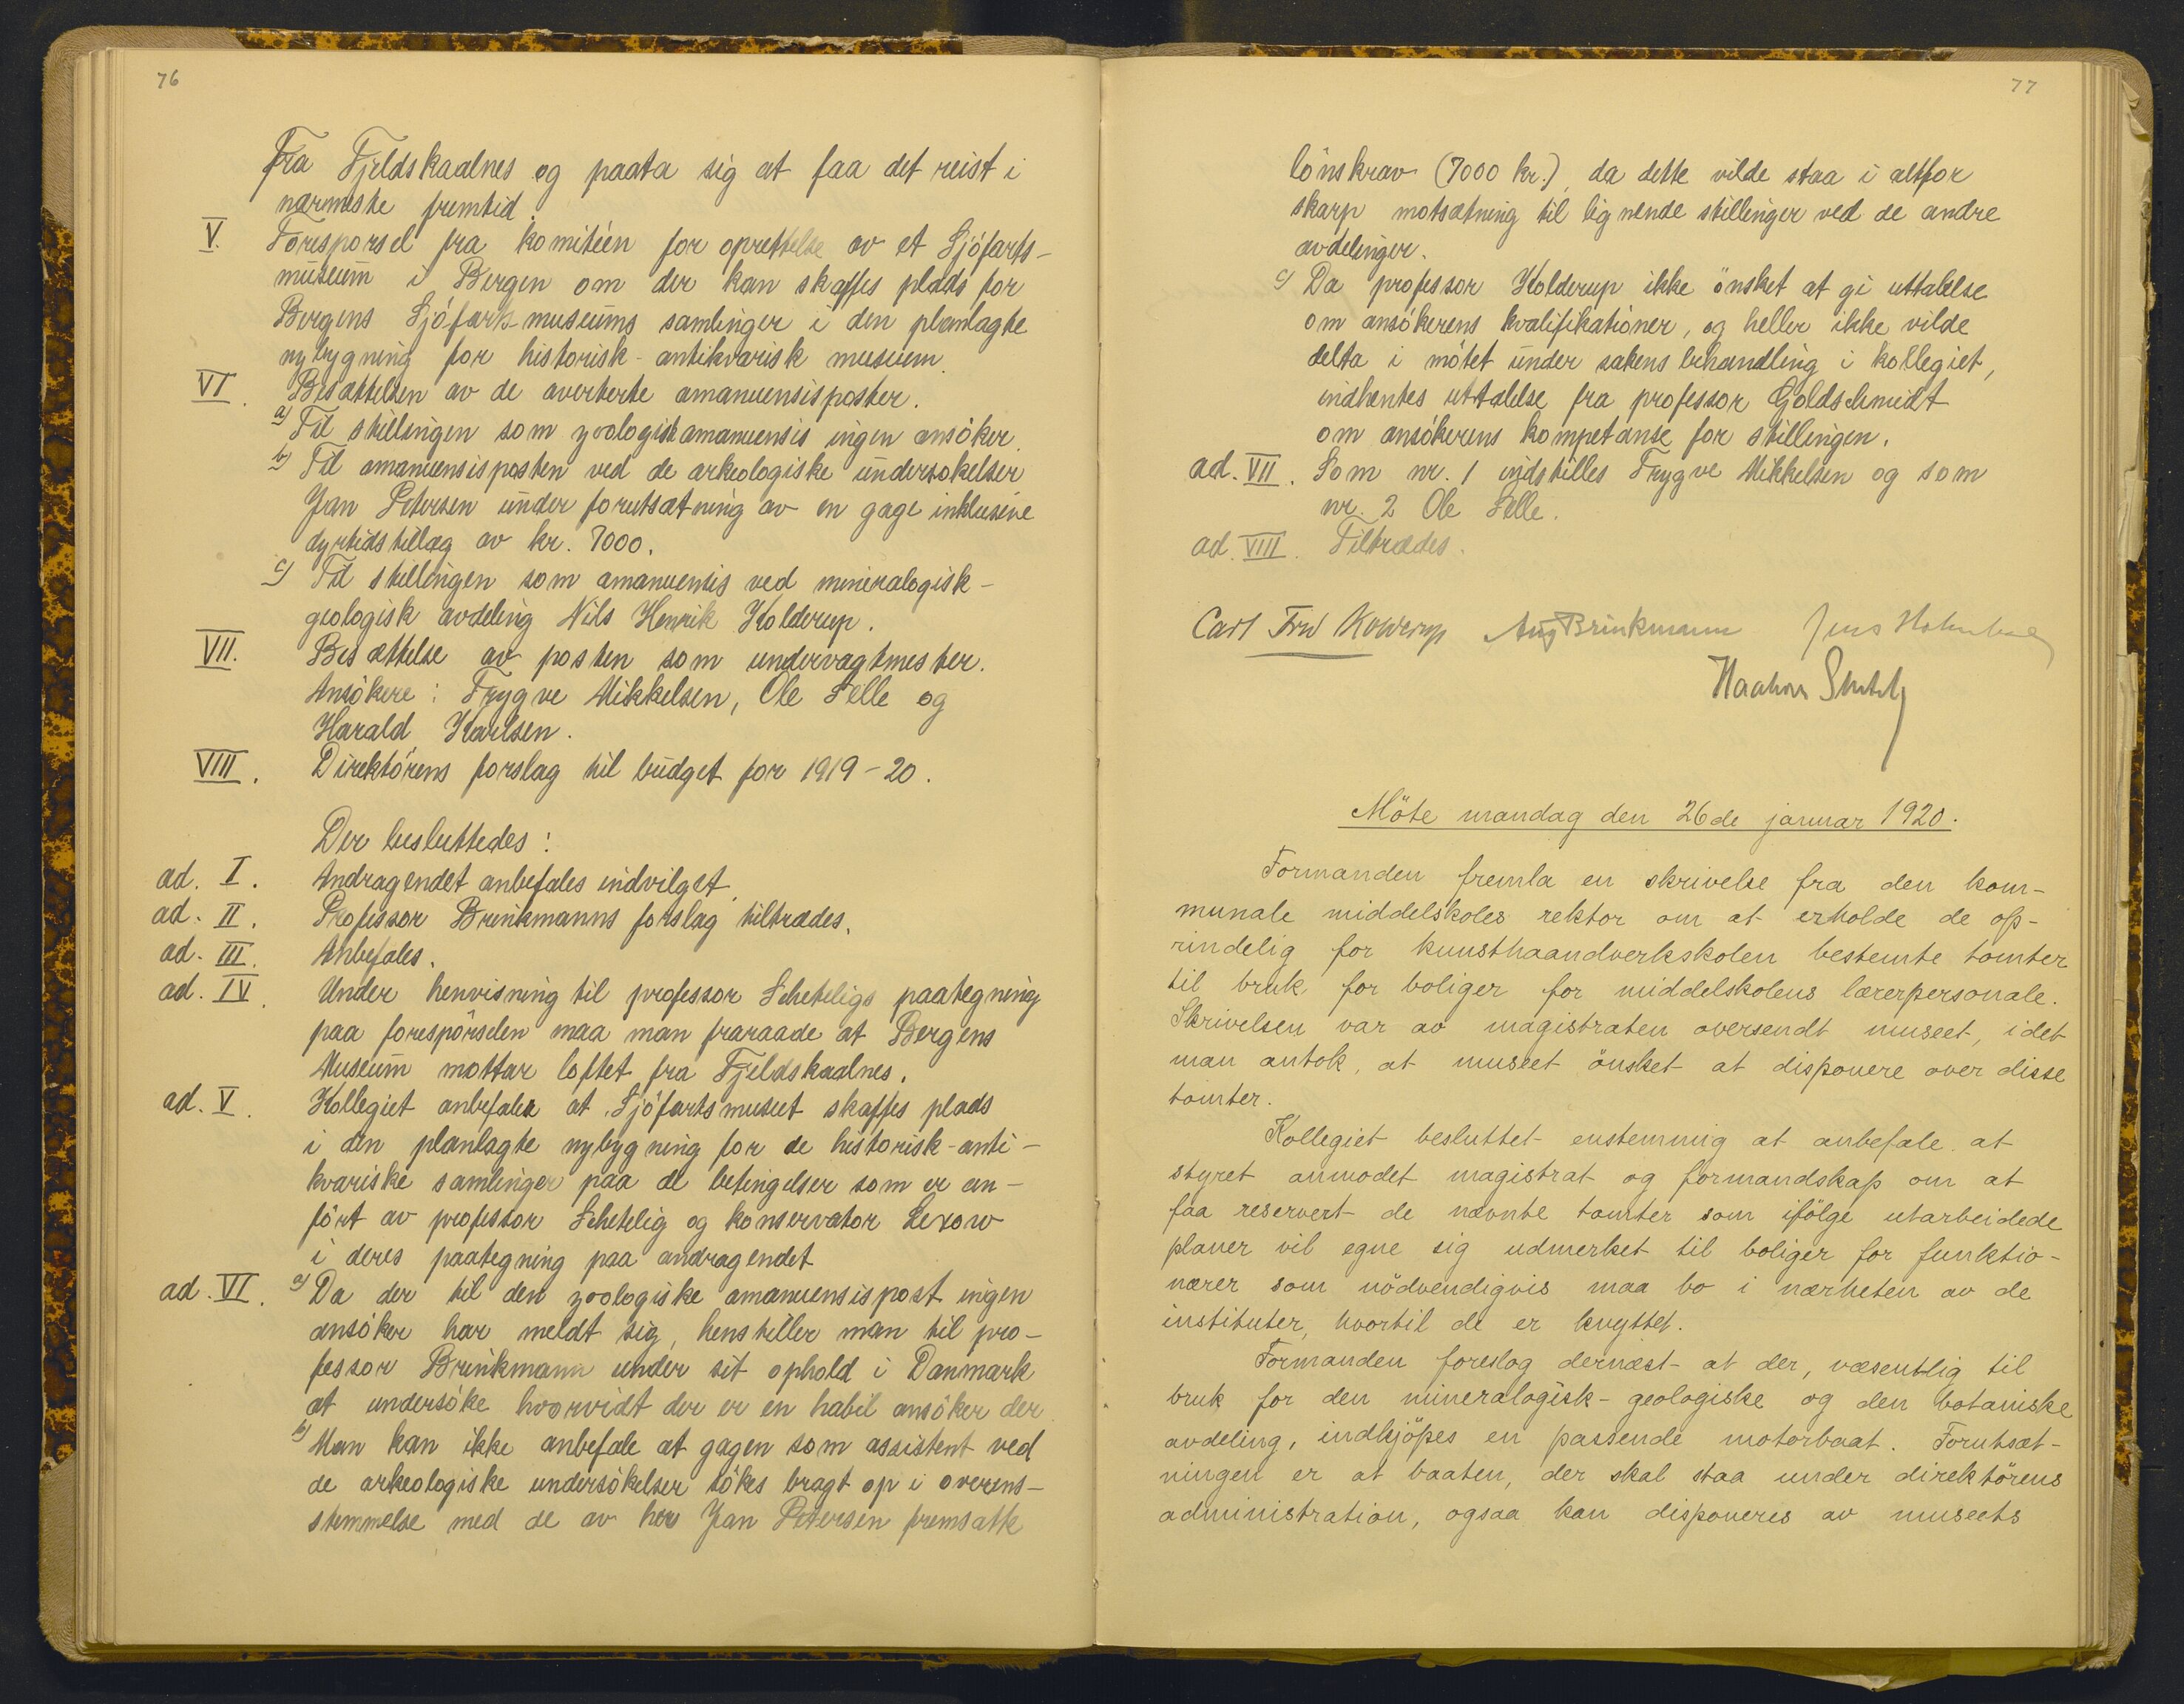 76
Fra Fjeldskaalnes og paata sig at faa det reist i
nærmeste fremtid.
V. Forespørsel fra komitéen for oprettelse av et Sjöfarts-
museum i Bergen om der kan skaffes plads for
Bergens Sjöfarts-museums samlinger i den planlagte
nybygning for historisk-antikvarisk museum.
VI. Besættelsen av de averterte amanuensisposter.
a) Til stillingen som zoologisk amanuensis ingen ansöker.
b) Til amanuensisposten ved de arkeologiske undersökelser
Jan Petersen under forutsætning av en gage inklusive
dyrtidstillæg av kr. 7000.
c) Til stillingen som amanuensis ved mineralogisk-
geologisk avdeling Nils Henrik Kolderup.
VII. Besættelse av posten som undervagtmester.
Ansökere: Trygve Mikkelsen, Ole Selle og
Harald Karlsen.
VIII. Direktörens forslag til budget for 1919-20.
Der besluttedes:
ad. I. Andragendet anbefales indvilget.
ad. II. Professor Brinkmanns forslag tiltrædes.
ad. III. Anbefales.
ad. IV. Under henvisning til professor Scheteligs paategning
paa forespörselen maa man fraraade at Bergens
Museum mottar loftet fra Fjeldskaalnes.
ad. V. Kollegiet anbefaler at Sjöfartsmuseet skaffes plads
i den planlagte nybygning for de historisk-anti-
kvariske samlinger paa de betingelser som er an-
fört av professor Schetelig og konservator Lexow
i deres paategning paa andragendet
ad. VI. a) Da der til den zoologiske amanuensispost ingen
ansöker har meldt sig, henstiller man til pro-
fessor Brinkmann under sit ophold i Danmark
at undersöke hvorvidt der er en habil ansöker der.
b) Man kan ikke anbefale at gagen som assistent ved
de arkeologiske undersökelser sökes bragt op i overens-
stemmelse med de av herr Jan Petersen fremsatte
77
lönskrav (7000 kr.), da dette vilde staa i altfor
skarp motsætning til lignende stillinger ved de andre
avdelinger.
c) Da professor Kolderup ikke önsket at gi uttalelse
om ansökerens kvalifikationer, og heller ikke vilde
delta i mötet under sakens behandling i kollegiet,
indhentes uttalelse fra professor Goldschmidt
om ansökerens kompetanse for stillingen.
ad. VII. Som nr. 1 indstilles Trygve Mikkelsen og som
nr. 2 Ole Selle.
ad. VIII. Tiltrædes.
Carl Fred Kolderup Aug Brinkmann Jens Holmboe
Haakon Schetelig
Möte mandag den 26de januar 1920.
Formanden fremla en skrivelse fra den kom-
munale middelskoles rektor om at erholde de op-
rindelig for kunsthaandverkskolen bestemte tomter
til bruk for boliger for middelskolens lærerpersonale.
Skrivelsen var av magistraten oversendt museet, idet
man antok, at museet önsket at disponere over disse
tomter.
Kollegiet besluttet enstemmig at anbefale at
styret anmodet magistrat og formandskap om at
faa reservert de nævnte tomter som ifölge utarbeidede
planer vil egne sig udmerket til boliger for funktio-
nærer som nödvendigvis maa bo i nærheten av de
instituter, hvortil de er knyttet.
Formanden foreslog dernæst at der, væsentlig til
bruk for den mineralogisk-geologiske og den botaniske
avdeling, indkjöpes en passende motorbaat. Forutsæt-
ningen er at baaten, der skal staa under direktörens
administration, ogsaa kan disponeres av museets